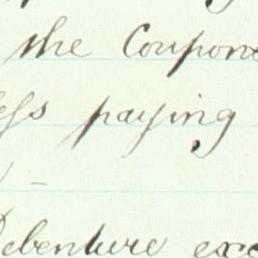 the Coupon
paying
Debenture exc